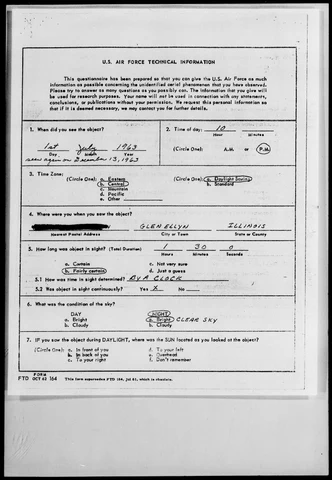 U.S. AIR FORCE TECHNICAL INFORMATION
This questionnaire has been prepared so that you can give the U.S. Air Force as much
information as possible concerning the unidentified aerial phenomenon that you have observed.
Please try to answer as many questions as you possibly can. The information that you give will
be used for research purposes. Your name will not be used in connection with any statements,
conclusions, or publications without your permission. We request this personal information so
that if it is deemed necessary, we may contact you for further details.
1. When did you see the object?
1st July 1963
Day Month Year
seen again on December 13, 1963
2. Time of day: 10
Hour Minutes
(Circle One): A.M. or P.M.
3. Time Zone:
(Circle One): a. Eastern (Circle One): a. Daylight Saving
b. Central b. Standard
c. Mountain
d. Pacific
e. Other
4. Where were you when you saw the object?
GLEN ELLYN ILLINOIS
Nearest Postal Address City or Town State or County
5. How long was object in sight? (Total Duration) 1 30 0
Hours Minutes Seconds
a. Certain c. Not very sure
b. Fairly certain d. Just a guess
5.1 How was time in sight determined? BY A CLOCK
5.2 Was object in sight continuously? Yes X No
6. What was the condition of the sky?
DAY NIGHT
a. Bright a. Bright CLEAR SKY
b. Cloudy b. Cloudy
7. IF you saw the object during DAYLIGHT, where was the SUN located as you looked at the object?
(Circle One): a. In front of you d. To your left
b. In back of you e. Overhead
c. To your right f. Don't remember
FORM
FTD OCT 62 164 This form supersedes FTD 164, Jul 61, which is obsolete.